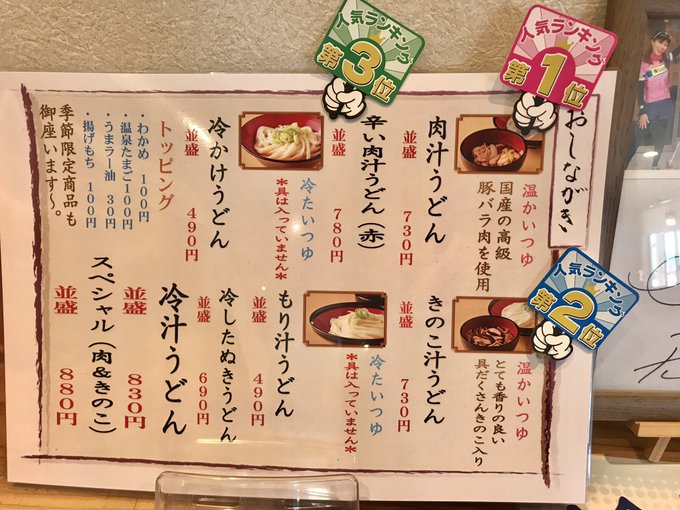 おしながき
人気ランキング
第1位
温かいつゆ
国産の高級
豚バラ肉を使用
肉汁うどん
並盛 730円
人気ランキング
第3位
辛い肉汁うどん(赤)
並盛 780円
冷たいつゆ
*具は入っていません*
冷かけうどん
並盛 490円
トッピング
・わかめ 100円
温泉たまご100円
・うまラー油 30円
・揚げもち 100円
季節限定商品も
御座います〜。
人気ランキング
第2位
温かいつゆ
とても香りの良い
具だくさんきのこ入り
きのこ汁うどん
並盛 730円
冷たいつゆ
*具は入っていません*
もり汁うどん
並盛 490円
冷したぬきうどん
並盛 690円
冷汁うどん
並盛 830円
スペシャル(肉&きのこ)
並盛 880円